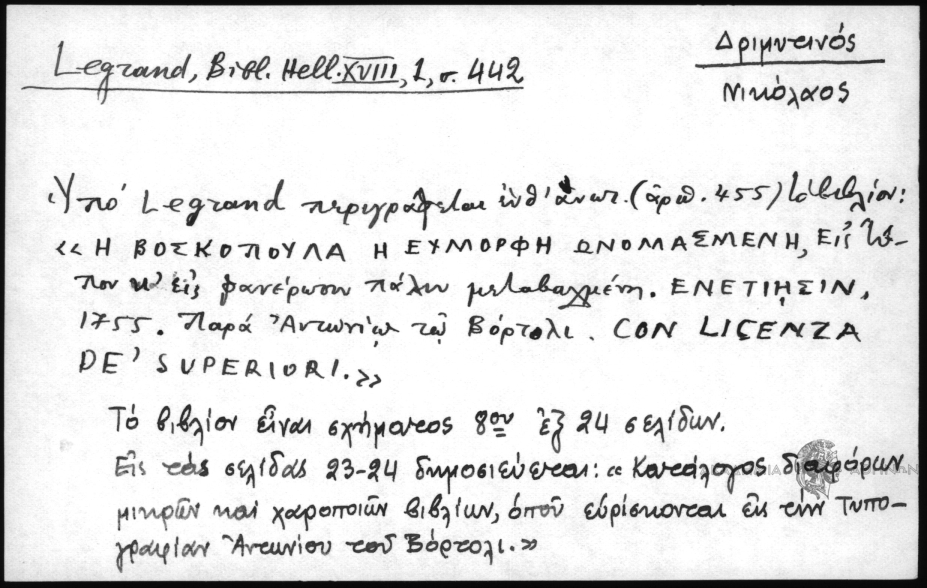 Legrand, Bibl. Hell. XVIII, 1, σ. 442
Δριμυτινός
Νικόλαος
Ὑπό Legrand περιγράφεται ἐνθ' ἀνωτ. (ἀριθ. 455) τό βιβλίον:
«Η ΒΟΣΚΟΠΟΥΛΑ Η ΕΥΜΟΡΦΗ ΩΝΟΜΑΣΜΕΝΗ, Εἰς τύ-
πον κ' εἰς φανέρωσιν πάλιν μεταβαλμένη. ΕΝΕΤΙῌΣΙΝ,
1755. Παρά Ἀντωνίῳ τῷ Βόρτολι. CON LICENZA
DE' SUPERIORI.»
Τό βιβλίον εἶναι σχήματος 8ου ἐξ 24 σελίδων.
Εἰς τάς σελίδας 23-24 δημοσιεύεται: «Κατάλογος διαφόρων
μικρῶν καί χαροποιῶν βιβλίων, ὁποῦ εὑρίσκονται εἰς τήν Τυπο-
γραφίαν Ἀντωνίου τοῦ Βόρτολι.»